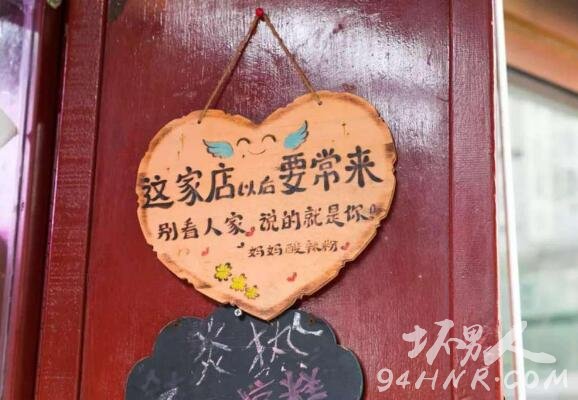 这家店以后要常来
别看人家 说的就是你。
妈妈酸辣粉
炎热
辣
坏男人
94HNR.COM